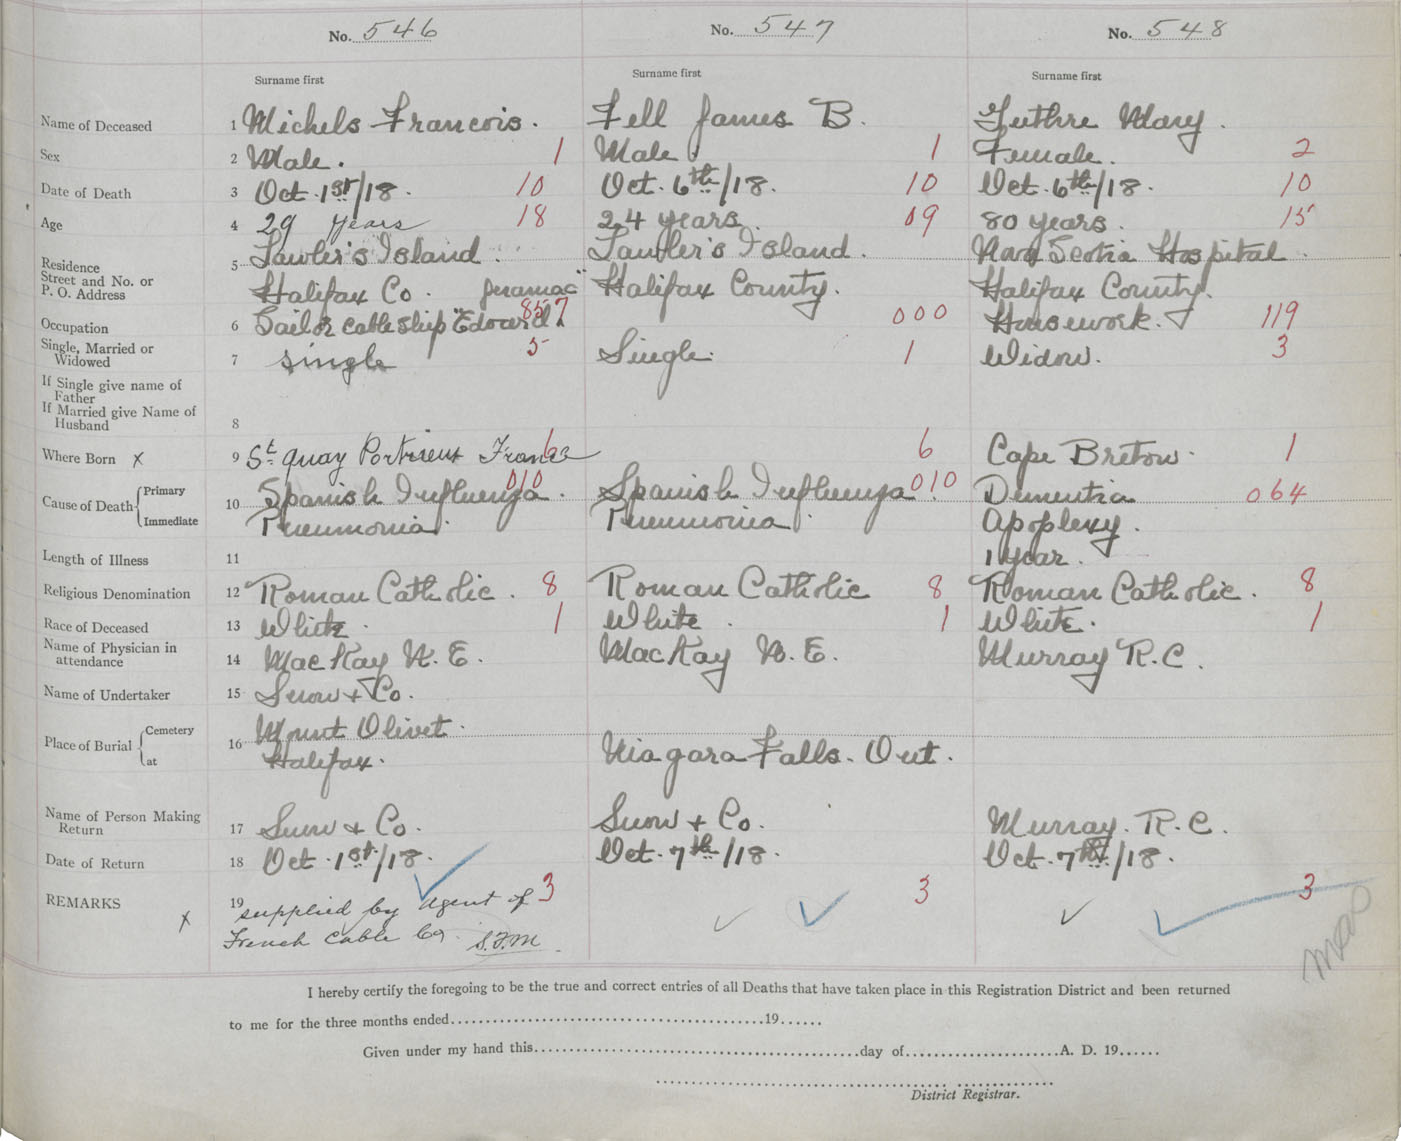 No. 546 No. 547 No. 548
Surname first Surname first Surname first
Name of Deceased 1 Michels Francois. Fell James B. Guthre Mary.
Sex 2 Male. 1 Male. 1 Female. 2
Date of Death 3 Oct. 1st/18. 10 Oct. 6th/18. 10 Oct. 6th/18. 10
Age 4 29 years 18 24 years. 09 80 years. 15
Residence Street and No. or P. O. Address 5 Lawler's Island. Lawler's Island. Nova Scotia Hospital.
Halifax Co. Halifax County. Halifax County.
Occupation 6 Sailor cable ship "Edouard Jeramac" 857 000 Housework. 119
Single, Married or Widowed 7 single 5 Single. 1 Widow. 3
If Single give name of Father
If Married give Name of Husband 8
Where Born x 9 St. Quay Portrieux France 6 6 Cape Breton. 1
Cause of Death Primary 10 Spanish Influenza. 010 Spanish Influenza. 010 Dementia 064
Immediate Pneumonia. Pneumonia. Apoplexy.
Length of Illness 11 1 year.
Religious Denomination 12 Roman Catholic. 8 Roman Catholic 8 Roman Catholic. 8
Race of Deceased 13 White. 1 White. 1 White. 1
Name of Physician in attendance 14 MacKay N. E. MacKay N. E. Murray R. C.
Name of Undertaker 15 Snow & Co.
Place of Burial Cemetery 16 Mount Olivet.
at Halifax. Niagara Falls. Ont.
Name of Person Making Return 17 Snow & Co. Snow & Co. Murray. R. C.
Date of Return 18 Oct. 1st/18. Oct. 7th/18. Oct. 7th/18.
REMARKS x 19 supplied by Agent of 3 3 3
French Cable Co. S.F.M.
I hereby certify the foregoing to be the true and correct entries of all Deaths that have taken place in this Registration District and been returned
to me for the three months ended 19......
Given under my hand this day of A. D. 19......
District Registrar.